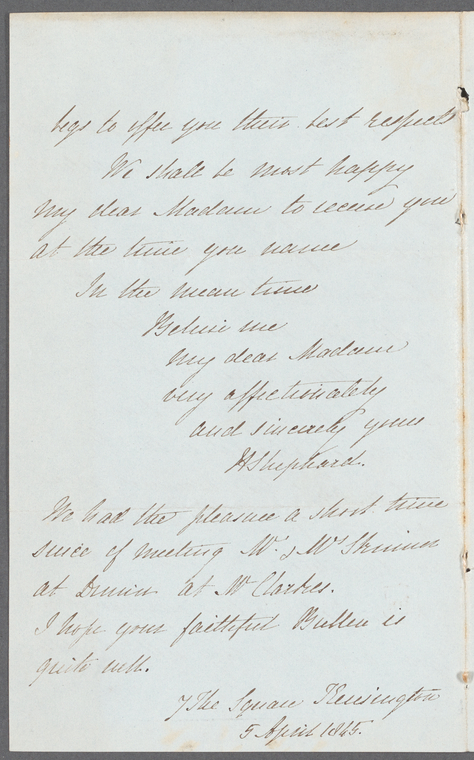 begs to offer you their best respects
We shall be most happy
my dear Madam to receive you
at the time you name
In the mean time
Believe me
my dear Madam
very affectionately
and sincerely yours
H Shephard.
We had the pleasure a short time
since of meeting Mr & Mrs Skinner
at Dinner at Mr Clarkes.
I hope your faithful Bullen is
quite well.
7 The Square Kensington
5 April 1845.